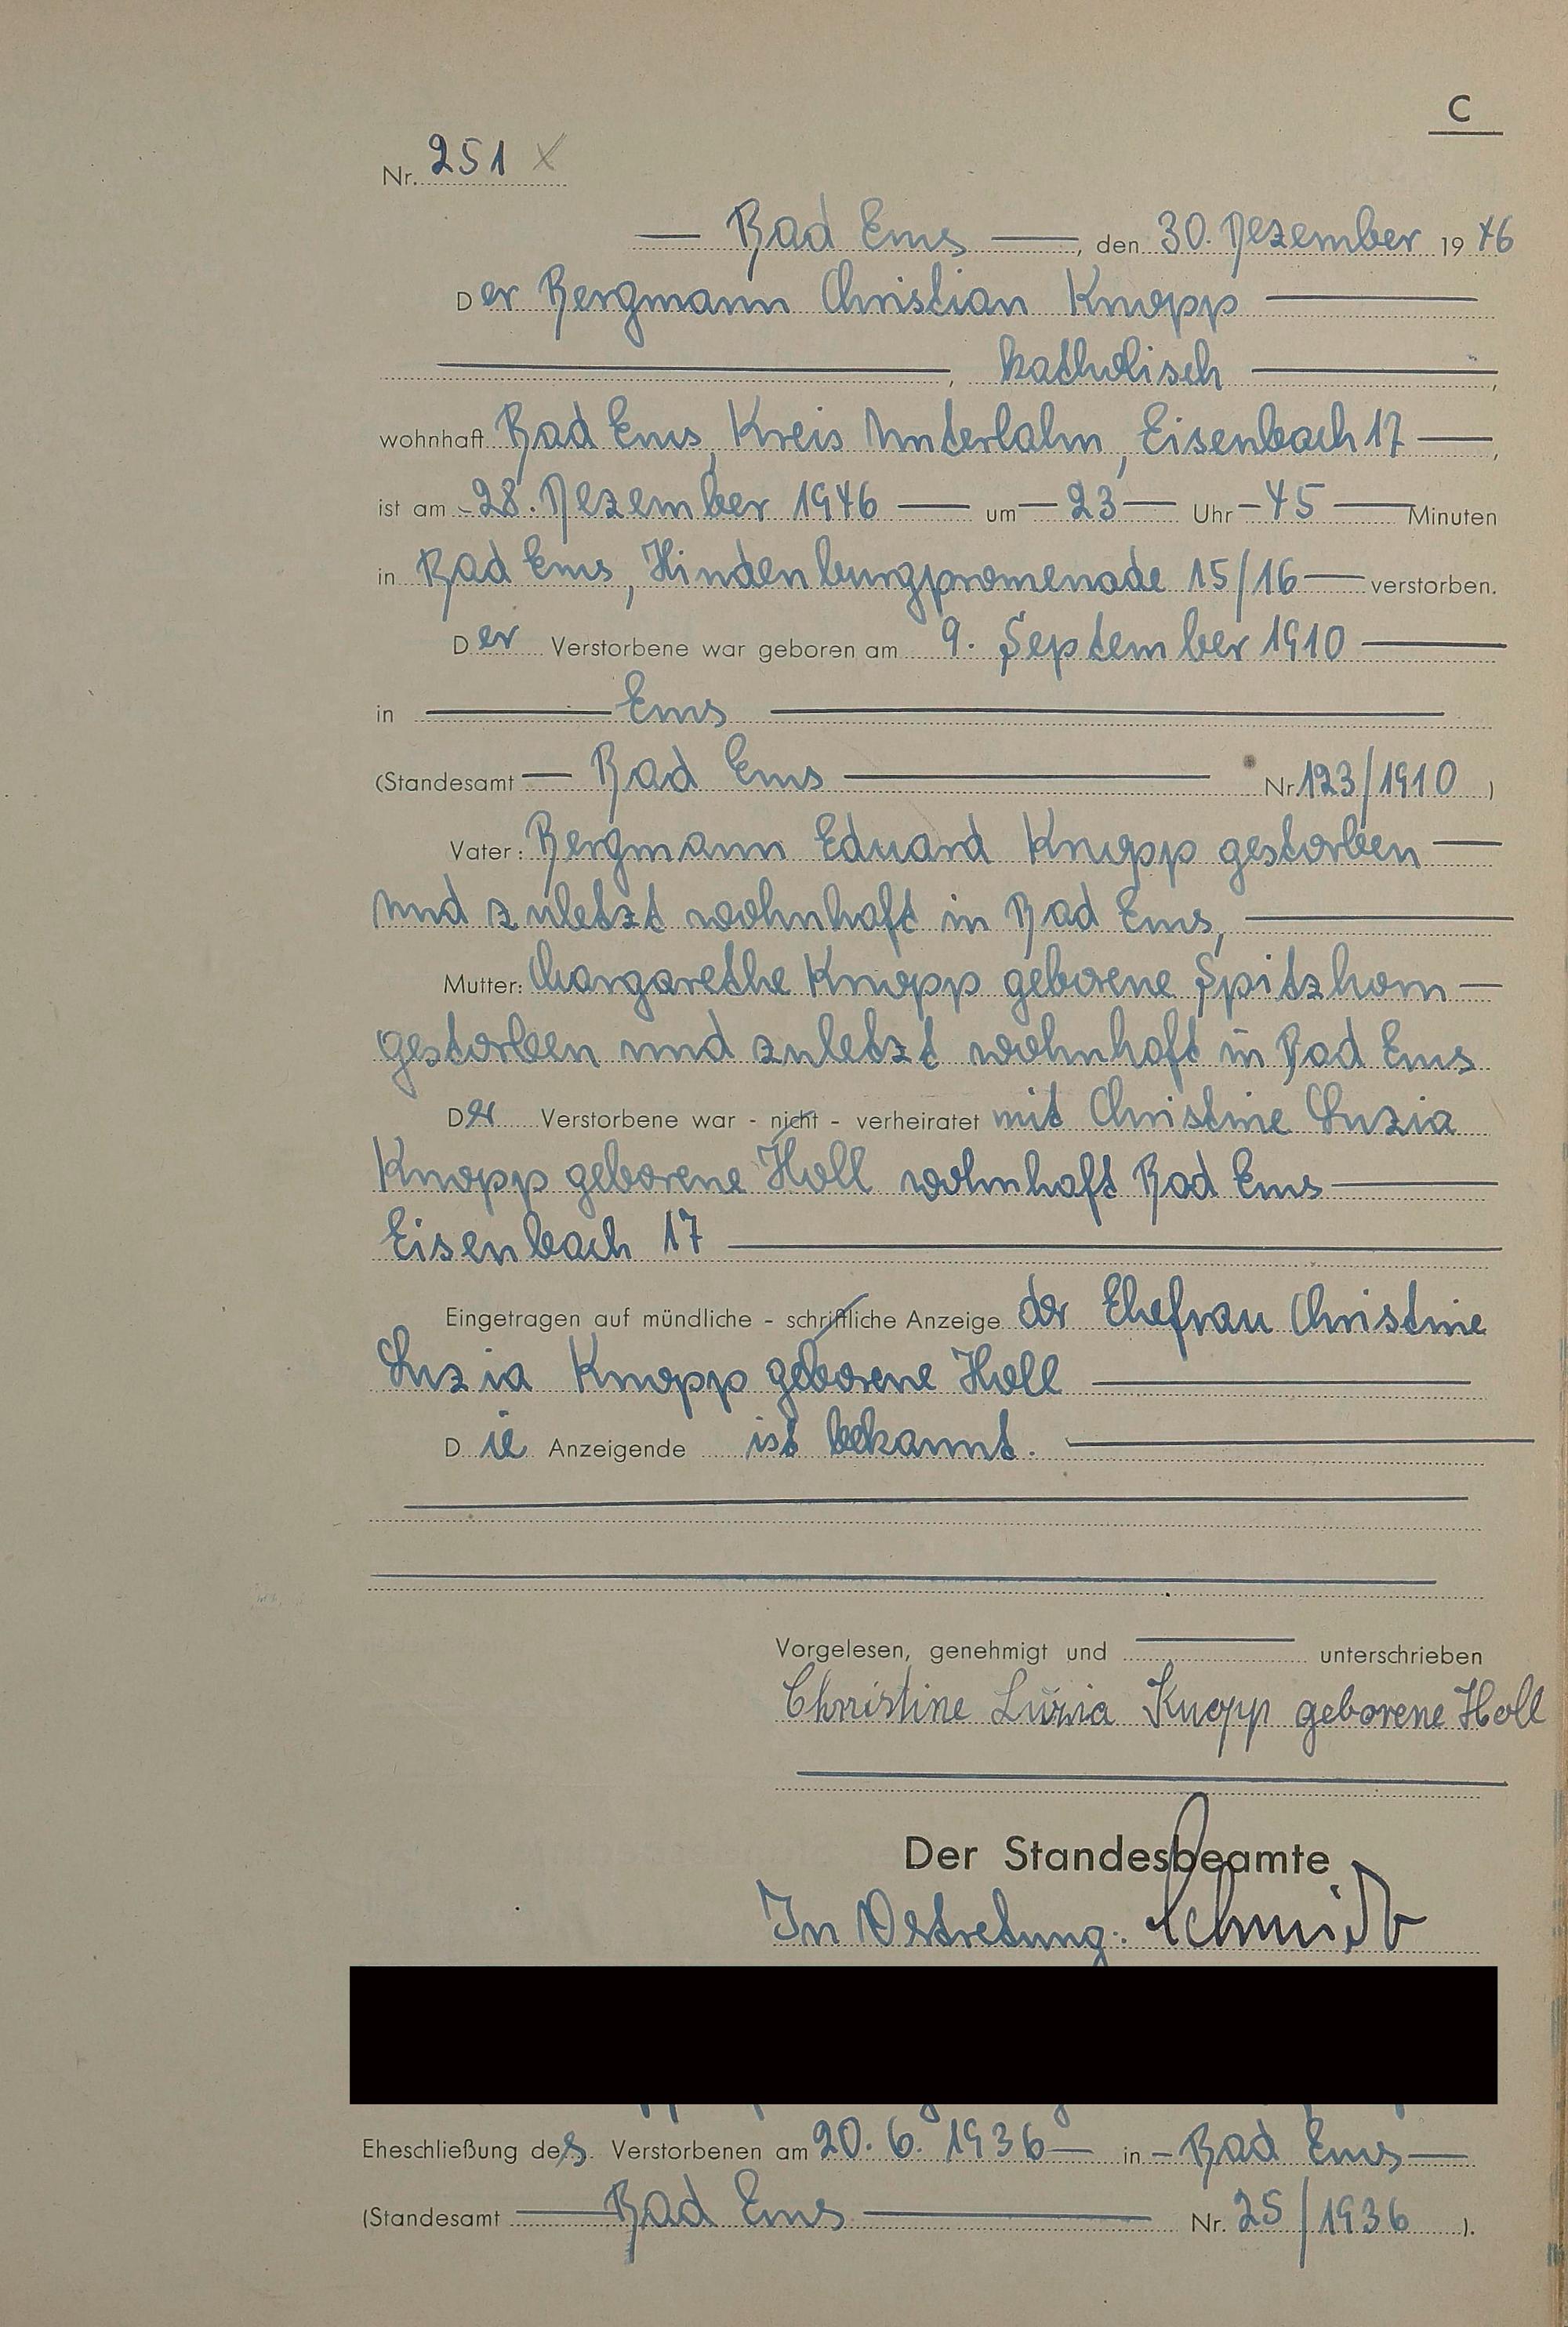 C
Nr. 251 x
Bad Ems, den 30. Dezember 1946
Der Bergmann Christian Knopp
, katholisch,
wohnhaft Bad Ems, Kreis Unterlahn, Eisenbach 17,
ist am 28. Dezember 1946 um 23 Uhr 45 Minuten
in Bad Ems, Hindenburgpromenade 15/16 verstorben.
Der Verstorbene war geboren am 9. September 1910
in Ems
(Standesamt Bad Ems Nr. 123/1910)
Vater: Bergmann Eduard Knopp gestorben
und zuletzt wohnhaft in Bad Ems,
Mutter: Margarethe Knopp geborene Spitzhorn
gestorben und zuletzt wohnhaft in Bad Ems
Der Verstorbene war - nicht - verheiratet mit Christine Luzia
Knopp geborene Holl wohnhaft Bad Ems
Eisenbach 17
Eingetragen auf mündliche - schriftliche Anzeige der Ehefrau Christine
Luzia Knopp geborene Holl
Die Anzeigende ist bekannt.
Vorgelesen, genehmigt und unterschrieben
Christine Luzia Knopp geborene Holl
Der Standesbeamte
In Vertretung: Schmidt
Eheschließung des Verstorbenen am 20. 6. 1936 in Bad Ems
(Standesamt Bad Ems Nr. 25/1936).